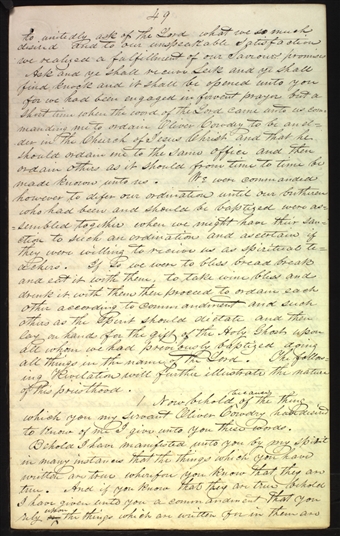 49
to unitedly ask of the Lord what we so much
desired And to our unspeakable satisfaction
we realized a fulfillment of our Saviours promise
Ask and ye shall recieve Seek and ye shall
find, knock and it shall be opened unto you
for we had been engaged in fervent prayer but a
short time when the word of the Lord came unto us com
manding me to ordain Oliver Cowdry to be an el
der in the Church of Jesus Christ And that he
should ordain me to the Same office and then
ordain others as it should from time to time be
made known unto us. We were commanded
however to difer our ordination until our brethren
who had been and should be baptized were as
sembled together when we might have their san
ction to such an ordination and ascertain if
they were willing to recieve us as spiritual te
achers. If So we were to bless bread break
and eat it with them, to take wine bless and
drink it with them then proceed to ordain each
other according to commandment and such
others as the Spirit should dictate and then
lay on hands for the gift of the Holy Ghost upon
all whom we had previously baptized doing
all things in the name of the Lord. The follow
ing Revelation will further illustrate the nature
of this priesthood.
1 Now behold because of the thing
which you my servant Oliver Cowdry have desired
to know of me I give unto you these words.
Behold I have manifested unto you by my Spirit
in many instances that the things which you have
written are true wherefore you know that they are
true. And if you know that they are true behold
I have given unto you a commandment that you
rely upon the things which are written for in them are